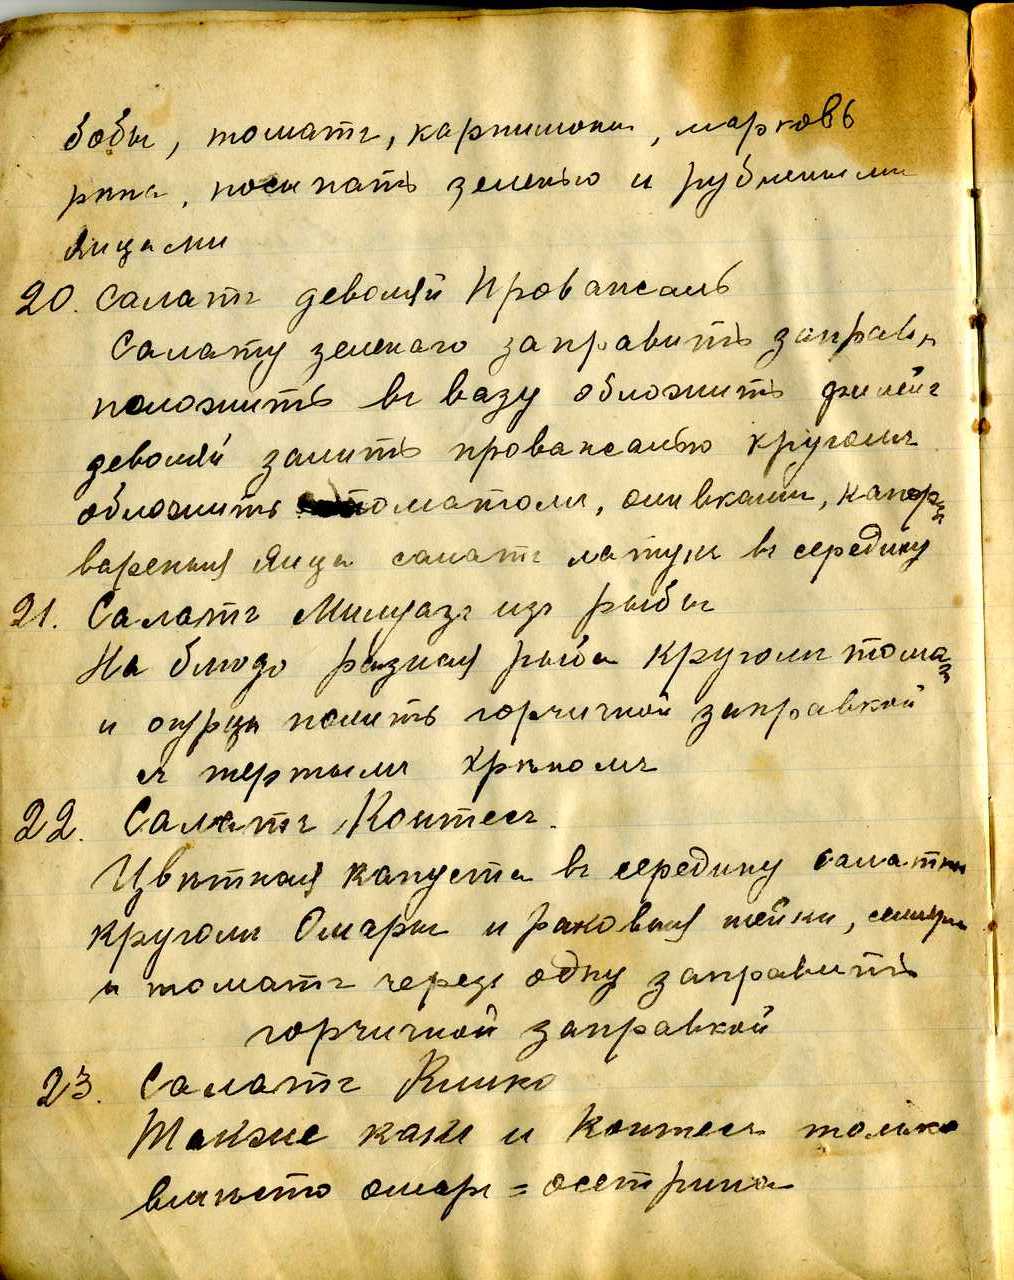 бобы, томатъ, корнишоны, марковь
рѣпа, посыпать зеленью и рублеными
яицами
20. Салатъ деволяй Провансаль
Салату зеленаго заправить заправк.
положить въ вазу обложить филейъ
деволяй залить провансалью кругомъ
обложить томатомъ, оливками, капор
вареныя яица салатъ латукъ въ середину
21. Салатъ изъ рыбы
На блюдо разная рыба кругомъ тома
и огурцы полить горчичной заправкой
съ тертымъ хрѣномъ
22. Салатъ Контесъ.
Цвѣтная капуста въ середину салатн
кругомъ Омары и раковыя шейки,
и томатъ черезъ одну заправить
горчичной заправкой
23. Салатъ
Также какъ и Контесъ только
вмѣсто омаръ = осетрина